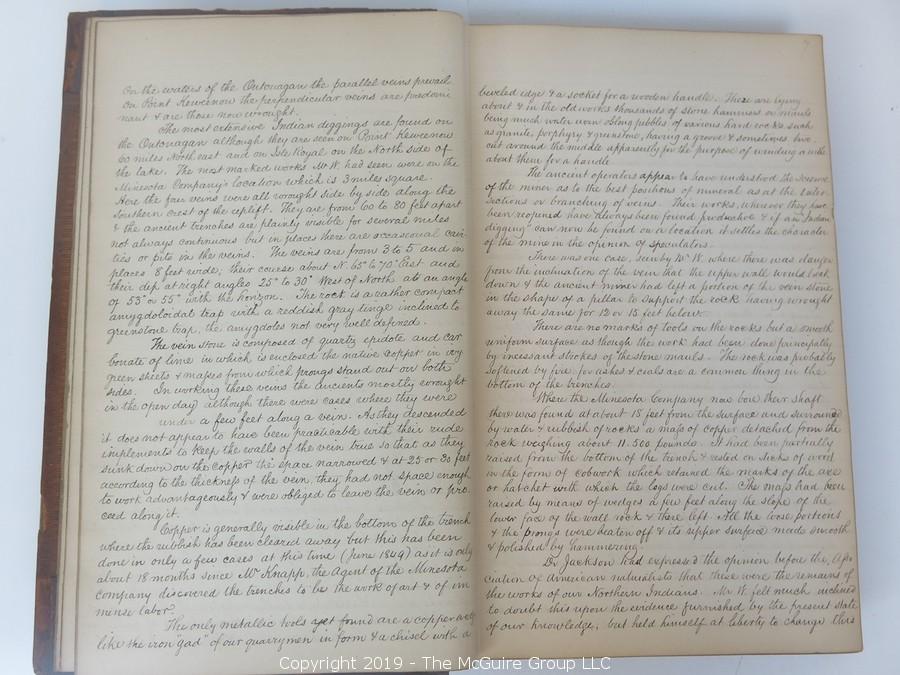 On the waters of the Ontonagan the parallel veins prevail
on Point Keweenow the perpendicular veins are predomi
nant & are those now wrought.
The most extensive Indian diggings are found on
the Ontonagan although they are seen on Point Kewcenow
60 miles North east and on Isle Royal on the North side of
the lake. The most marked works Mr W. had seen were on the
Minesota Company's location which is 3 miles square.
Here the four veins were all wrought side by side along the
Southern crest of the uplift. They are from 60 to 80 feet apart
& the ancient trenches are plainly visible for several miles
not always continuous but in places there are occasional cavi-
ties or pits in the veins. The veins are from 3 to 5 and in
places 8 feet wide; their course about N. 65° to 70° East and
their dip at right angles 25° to 30° West of North at an angle
of 53° or 55° with the horizon. The rock is a rather compact
amygdoloidal trap with a reddish gray tinge inclined to
greenstone trap, the amygdoles not very well defined.
The vein stone is composed of quartz epidote and car
bonate of lime in which is enclosed the native copper in
green sheets & masses from which prongs stand out on both
sides. In working these veins the ancients mostly wrought
in the open day although there were cases where they were
under a few feet along a vein. As they descended
it does not appear to have been practicable with their rude
implements to keep the walls of the vein true so that as they
sunk down on the copper the space narrowed & at 25 or 30 feet
according to the thickness of the vein, they had not space enough
to work advantageously & were obliged to leave the vein or pro
ceed along it.
Copper is generally visible in the bottom of the trench
where the rubbish has been cleared away but this has been
done in only a few cases at this time (June 1849) as it is only
about 18 months since Mr Knapp, the Agent of the Minesota
Company discovered the trenches to be the work of art & of im
mense labor.
The only metallic tools yet found are a copper
like the iron "gad" of our quarrymen in form & a chisel with a
beveled edge & a socket for a wooden handle. There are lying
about & in the old works thousands of stone hammers or mauls
being much water worn oblong pebbles of various hard rocks such
as granite, porphyry & greenstone, having a groove & sometimes two
cut around the middle apparently for the purpose of winding a withe
about them for a handle
The ancient operators appear to have understood the science
of the miner as to the best positions of mineral as at the inter
sections or branching of veins. Their works, wherever they have
been reopened have always been found productive & if an "Indian
digging" can now be found on a location it settles the character
of the mine in the opinion of speculators.
There was one case, seen by Mr W. where there was danger
from the inclination of the vein that the upper wall would break
down & the ancient miner had left a portion of the vein stone
in the shape of a pillar to support the rock having wrought
away the same for 12 or 15 feet below.
There are no marks of tools on the rocks but a smooth
uniform surface as though the work had been done principally
by incessant strokes of the stone mauls. The rock was probably
softened by fire for ashes & coals are a common thing in the
bottom of the trenches.
Where the Minesota Company now have their shaft
there was found at about 18 feet from the surface and surrounded
by water & rubbish of rocks a mass of copper detached from the
rock weighing about 11.500 pounds. It had been partially
raised from the bottom of the trench & rested on sticks of wood
in the form of cobwork which retained the marks of the axe
or hatchet with which the logs were cut. The mass had been
raised by means of wedges a few feet along the slope of the
lower face of the wall rock & there left. All the loose portions
& the prongs were beaten off & its upper surface made smooth
& polished by hammering.
Dr Jackson had expressed the opinion before the Asso
ciation of American naturalists that these were the remains of
the works of our Northern Indians. Mr W. felt much inclined
to doubt this upon the evidence furnished by the present state
of our knowledge, but held himself at liberty to change this
Copyright 2019 - The McGuire Group LLC